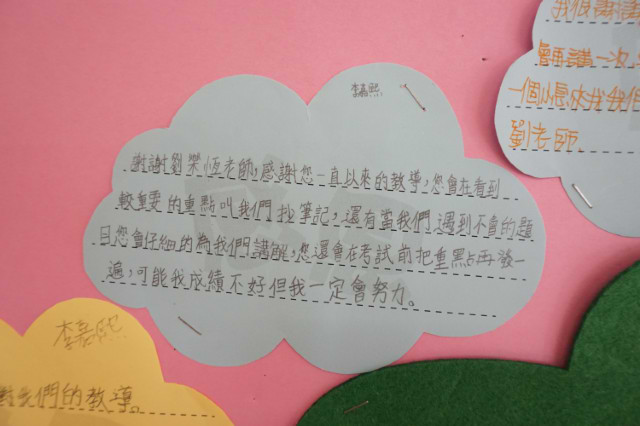 李嘉熙
謝謝劉榮恆老師,感謝您一直以來的教導,您會在看到
較重要的重點叫我們抄筆記,還有當我們遇到不會的題
目您會仔細的為我們講解,您還會在考試前把重點再發一
遍,可能我成績不好但我一定會努力。
會再講一次
劉老師
李嘉熙
我們的教導。